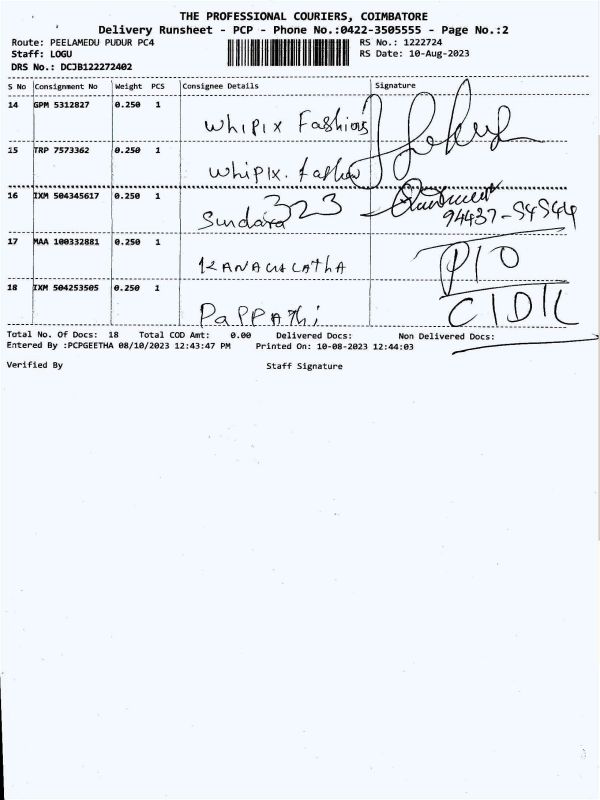 THE PROFESSIONAL COURIERS, COIMBATORE
Delivery Runsheet - PCP - Phone No.:0422-3505555 - Page No.:2
Route: PEELAMEDU PUDUR PC4 RS No.: 1222724
Staff: LOGU RS Date: 10-Aug-2023
DRS No.: DCJB122272402
S No Consignment No Weight PCS Consignee Details Signature
14 GPM 5312827 0.250 1 Whipix Fashions
15 TRP 7573362 0.250 1 Whipix.
16 IXM 504345617 0.250 1 Sundara 323
94437-54544
17 MAA 100332881 0.250 1 P10
18 IXM 504253505 0.250 1 PaPPAThi
Total No. Of Docs: 18 Total COD Amt: 0.00 Delivered Docs: Non Delivered Docs:
Entered By :PCPGEETHA 08/10/2023 12:43:47 PM Printed On: 10-08-2023 12:44:03
Verified By Staff Signature